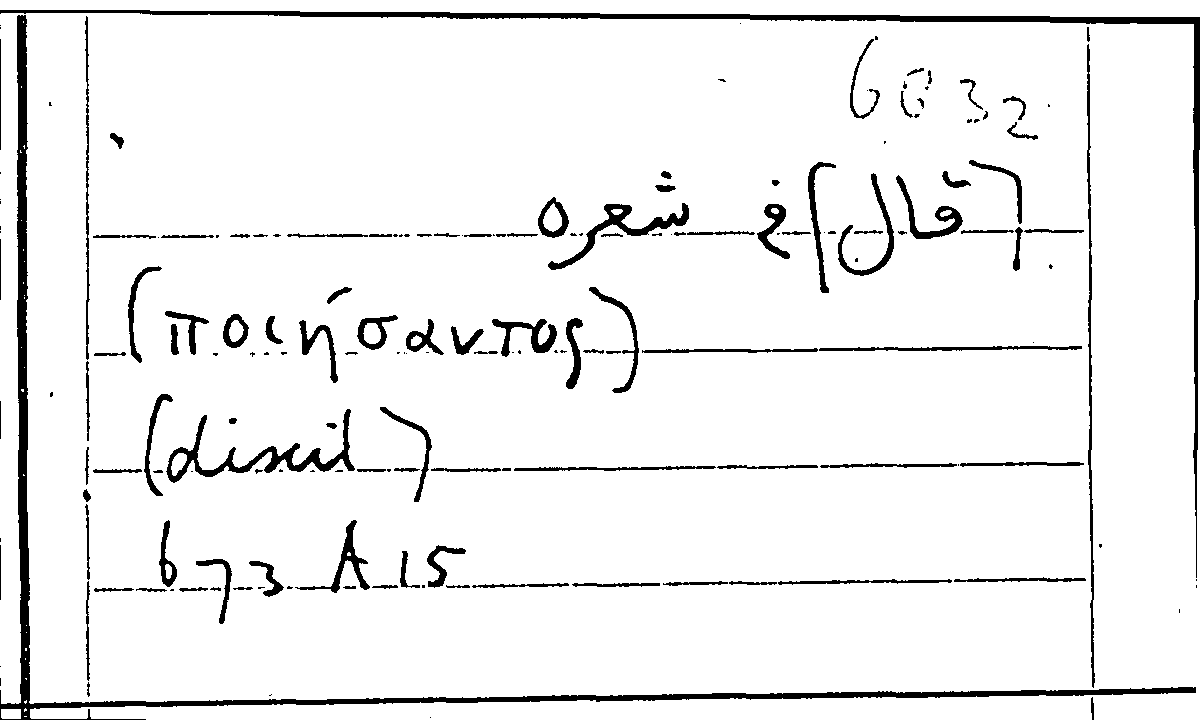 6032
(قال) في شعره
(ποιήσαντος)
(discit)
673 A 15